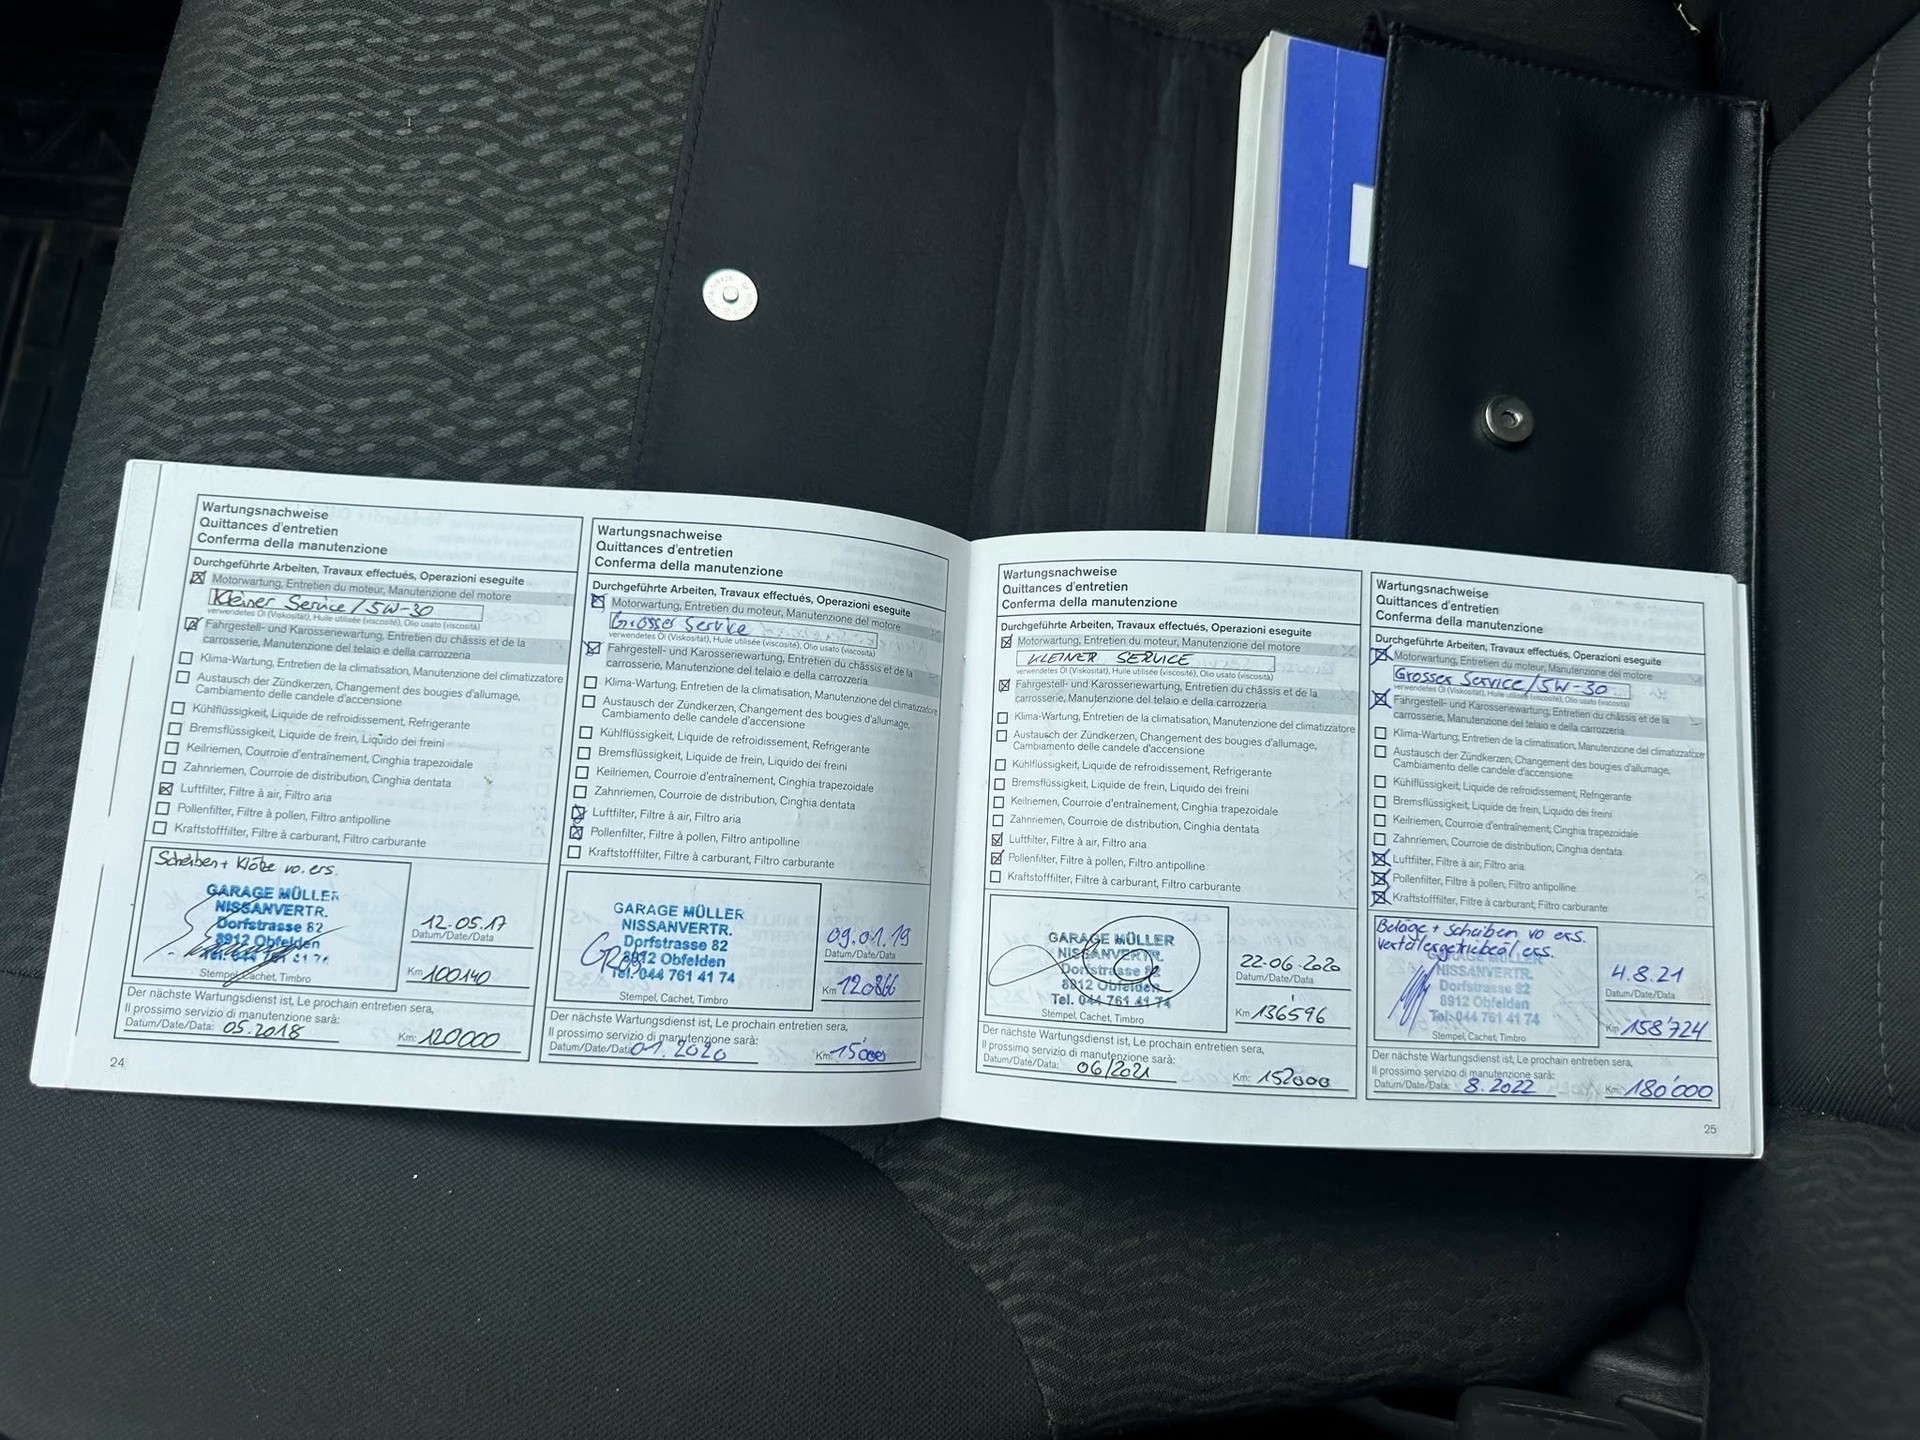 Wartungsnachweise
Quittances d'entretien
Conferma della manutenzione
Durchgeführte Arbeiten, Travaux effectués, Operazioni eseguite
Motorwartung, Entretien du moteur, Manutenzione del motore
Kleiner Service / 5W-30
verwendetes Öl (Viskosität), Huile utilisée (viscosité), Olio usato (viscosità)
Fahrgestell- und Karosseriewartung, Entretien du châssis et de la
carrosserie, Manutenzione del telaio e della carrozzeria
Klima-Wartung, Entretien de la climatisation, Manutenzione del climatizzatore
Austausch der Zündkerzen, Changement des bougies d'allumage,
Cambiamento delle candele d'accensione
Kühlflüssigkeit, Liquide de refroidissement, Refrigerante
Bremsflüssigkeit, Liquide de frein, Liquido dei freini
Keilriemen, Courroie d'entraînement, Cinghia trapezoidale
Zahnriemen, Courroie de distribution, Cinghia dentata
Luftfilter, Filtre à air, Filtro aria
Pollenfilter, Filtre à pollen, Filtro antipolline
Kraftstofffilter, Filtre à carburant, Filtro carburante
Scheiben + Klötze vo. ers.
GARAGE MÜLLER
NISSANVERTR.
Dorfstrasse 82
8912 Obfelden
Tel. 044 761 41 74
Stempel, Cachet, Timbro
12.05.17
Datum/Date/Data
Km 100140
Der nächste Wartungsdienst ist, Le prochain entretien sera,
Il prossimo servizio di manutenzione sarà:
Datum/Date/Data: 05.2018 Km: 120000
24
Wartungsnachweise
Quittances d'entretien
Conferma della manutenzione
Durchgeführte Arbeiten, Travaux effectués, Operazioni eseguite
Motorwartung, Entretien du moteur, Manutenzione del motore
Grosser Service
verwendetes Öl (Viskosität), Huile utilisée (viscosité), Olio usato (viscosità)
Fahrgestell- und Karosseriewartung, Entretien du châssis et de la
carrosserie, Manutenzione del telaio e della carrozzeria
Klima-Wartung, Entretien de la climatisation, Manutenzione del climatizzatore
Austausch der Zündkerzen, Changement des bougies d'allumage,
Cambiamento delle candele d'accensione
Kühlflüssigkeit, Liquide de refroidissement, Refrigerante
Bremsflüssigkeit, Liquide de frein, Liquido dei freini
Keilriemen, Courroie d'entraînement, Cinghia trapezoidale
Zahnriemen, Courroie de distribution, Cinghia dentata
Luftfilter, Filtre à air, Filtro aria
Pollenfilter, Filtre à pollen, Filtro antipolline
Kraftstofffilter, Filtre à carburant, Filtro carburante
GARAGE MÜLLER
NISSANVERTR.
Dorfstrasse 82
8912 Obfelden
Tel. 044 761 41 74
Stempel, Cachet, Timbro
09.01.19
Datum/Date/Data
Km 120866
Der nächste Wartungsdienst ist, Le prochain entretien sera,
Il prossimo servizio di manutenzione sarà:
Datum/Date/Data: 01.2020 Km: 15'000
Wartungsnachweise
Quittances d'entretien
Conferma della manutenzione
Durchgeführte Arbeiten, Travaux effectués, Operazioni eseguite
Motorwartung, Entretien du moteur, Manutenzione del motore
KLEINER SERVICE
verwendetes Öl (Viskosität), Huile utilisée (viscosité), Olio usato (viscosità)
Fahrgestell- und Karosseriewartung, Entretien du châssis et de la
carrosserie, Manutenzione del telaio e della carrozzeria
Klima-Wartung, Entretien de la climatisation, Manutenzione del climatizzatore
Austausch der Zündkerzen, Changement des bougies d'allumage,
Cambiamento delle candele d'accensione
Kühlflüssigkeit, Liquide de refroidissement, Refrigerante
Bremsflüssigkeit, Liquide de frein, Liquido dei freini
Keilriemen, Courroie d'entraînement, Cinghia trapezoidale
Zahnriemen, Courroie de distribution, Cinghia dentata
Luftfilter, Filtre à air, Filtro aria
Pollenfilter, Filtre à pollen, Filtro antipolline
Kraftstofffilter, Filtre à carburant, Filtro carburante
GARAGE MÜLLER
NISSANVERTR.
Dorfstrasse 82
8912 Obfelden
Tel. 044 761 41 74
Stempel, Cachet, Timbro
22.06.2020
Datum/Date/Data
Km 136'596
Der nächste Wartungsdienst ist, Le prochain entretien sera,
Il prossimo servizio di manutenzione sarà:
Datum/Date/Data: 06/2021 Km: 152000
Wartungsnachweise
Quittances d'entretien
Conferma della manutenzione
Durchgeführte Arbeiten, Travaux effectués, Operazioni eseguite
Motorwartung, Entretien du moteur, Manutenzione del motore
Grosser Service / 5W-30
verwendetes Öl (Viskosität), Huile utilisée (viscosité), Olio usato (viscosità)
Fahrgestell- und Karosseriewartung, Entretien du châssis et de la
carrosserie, Manutenzione del telaio e della carrozzeria
Klima-Wartung, Entretien de la climatisation, Manutenzione del climatizzatore
Austausch der Zündkerzen, Changement des bougies d'allumage,
Cambiamento delle candele d'accensione
Kühlflüssigkeit, Liquide de refroidissement, Refrigerante
Bremsflüssigkeit, Liquide de frein, Liquido dei freini
Keilriemen, Courroie d'entraînement, Cinghia trapezoidale
Zahnriemen, Courroie de distribution, Cinghia dentata
Luftfilter, Filtre à air, Filtro aria
Pollenfilter, Filtre à pollen, Filtro antipolline
Kraftstofffilter, Filtre à carburant, Filtro carburante
Beläge + Scheiben vo ers.
Vertälergetriebeöl ers.
GARAGE MÜLLER
NISSANVERTR.
Dorfstrasse 82
8912 Obfelden
Tel. 044 761 41 74
Stempel, Cachet, Timbro
4.8.21
Datum/Date/Data
Km 158'724
Der nächste Wartungsdienst ist, Le prochain entretien sera,
Il prossimo servizio di manutenzione sarà:
Datum/Date/Data: 8.2022 Km: 180'000
25